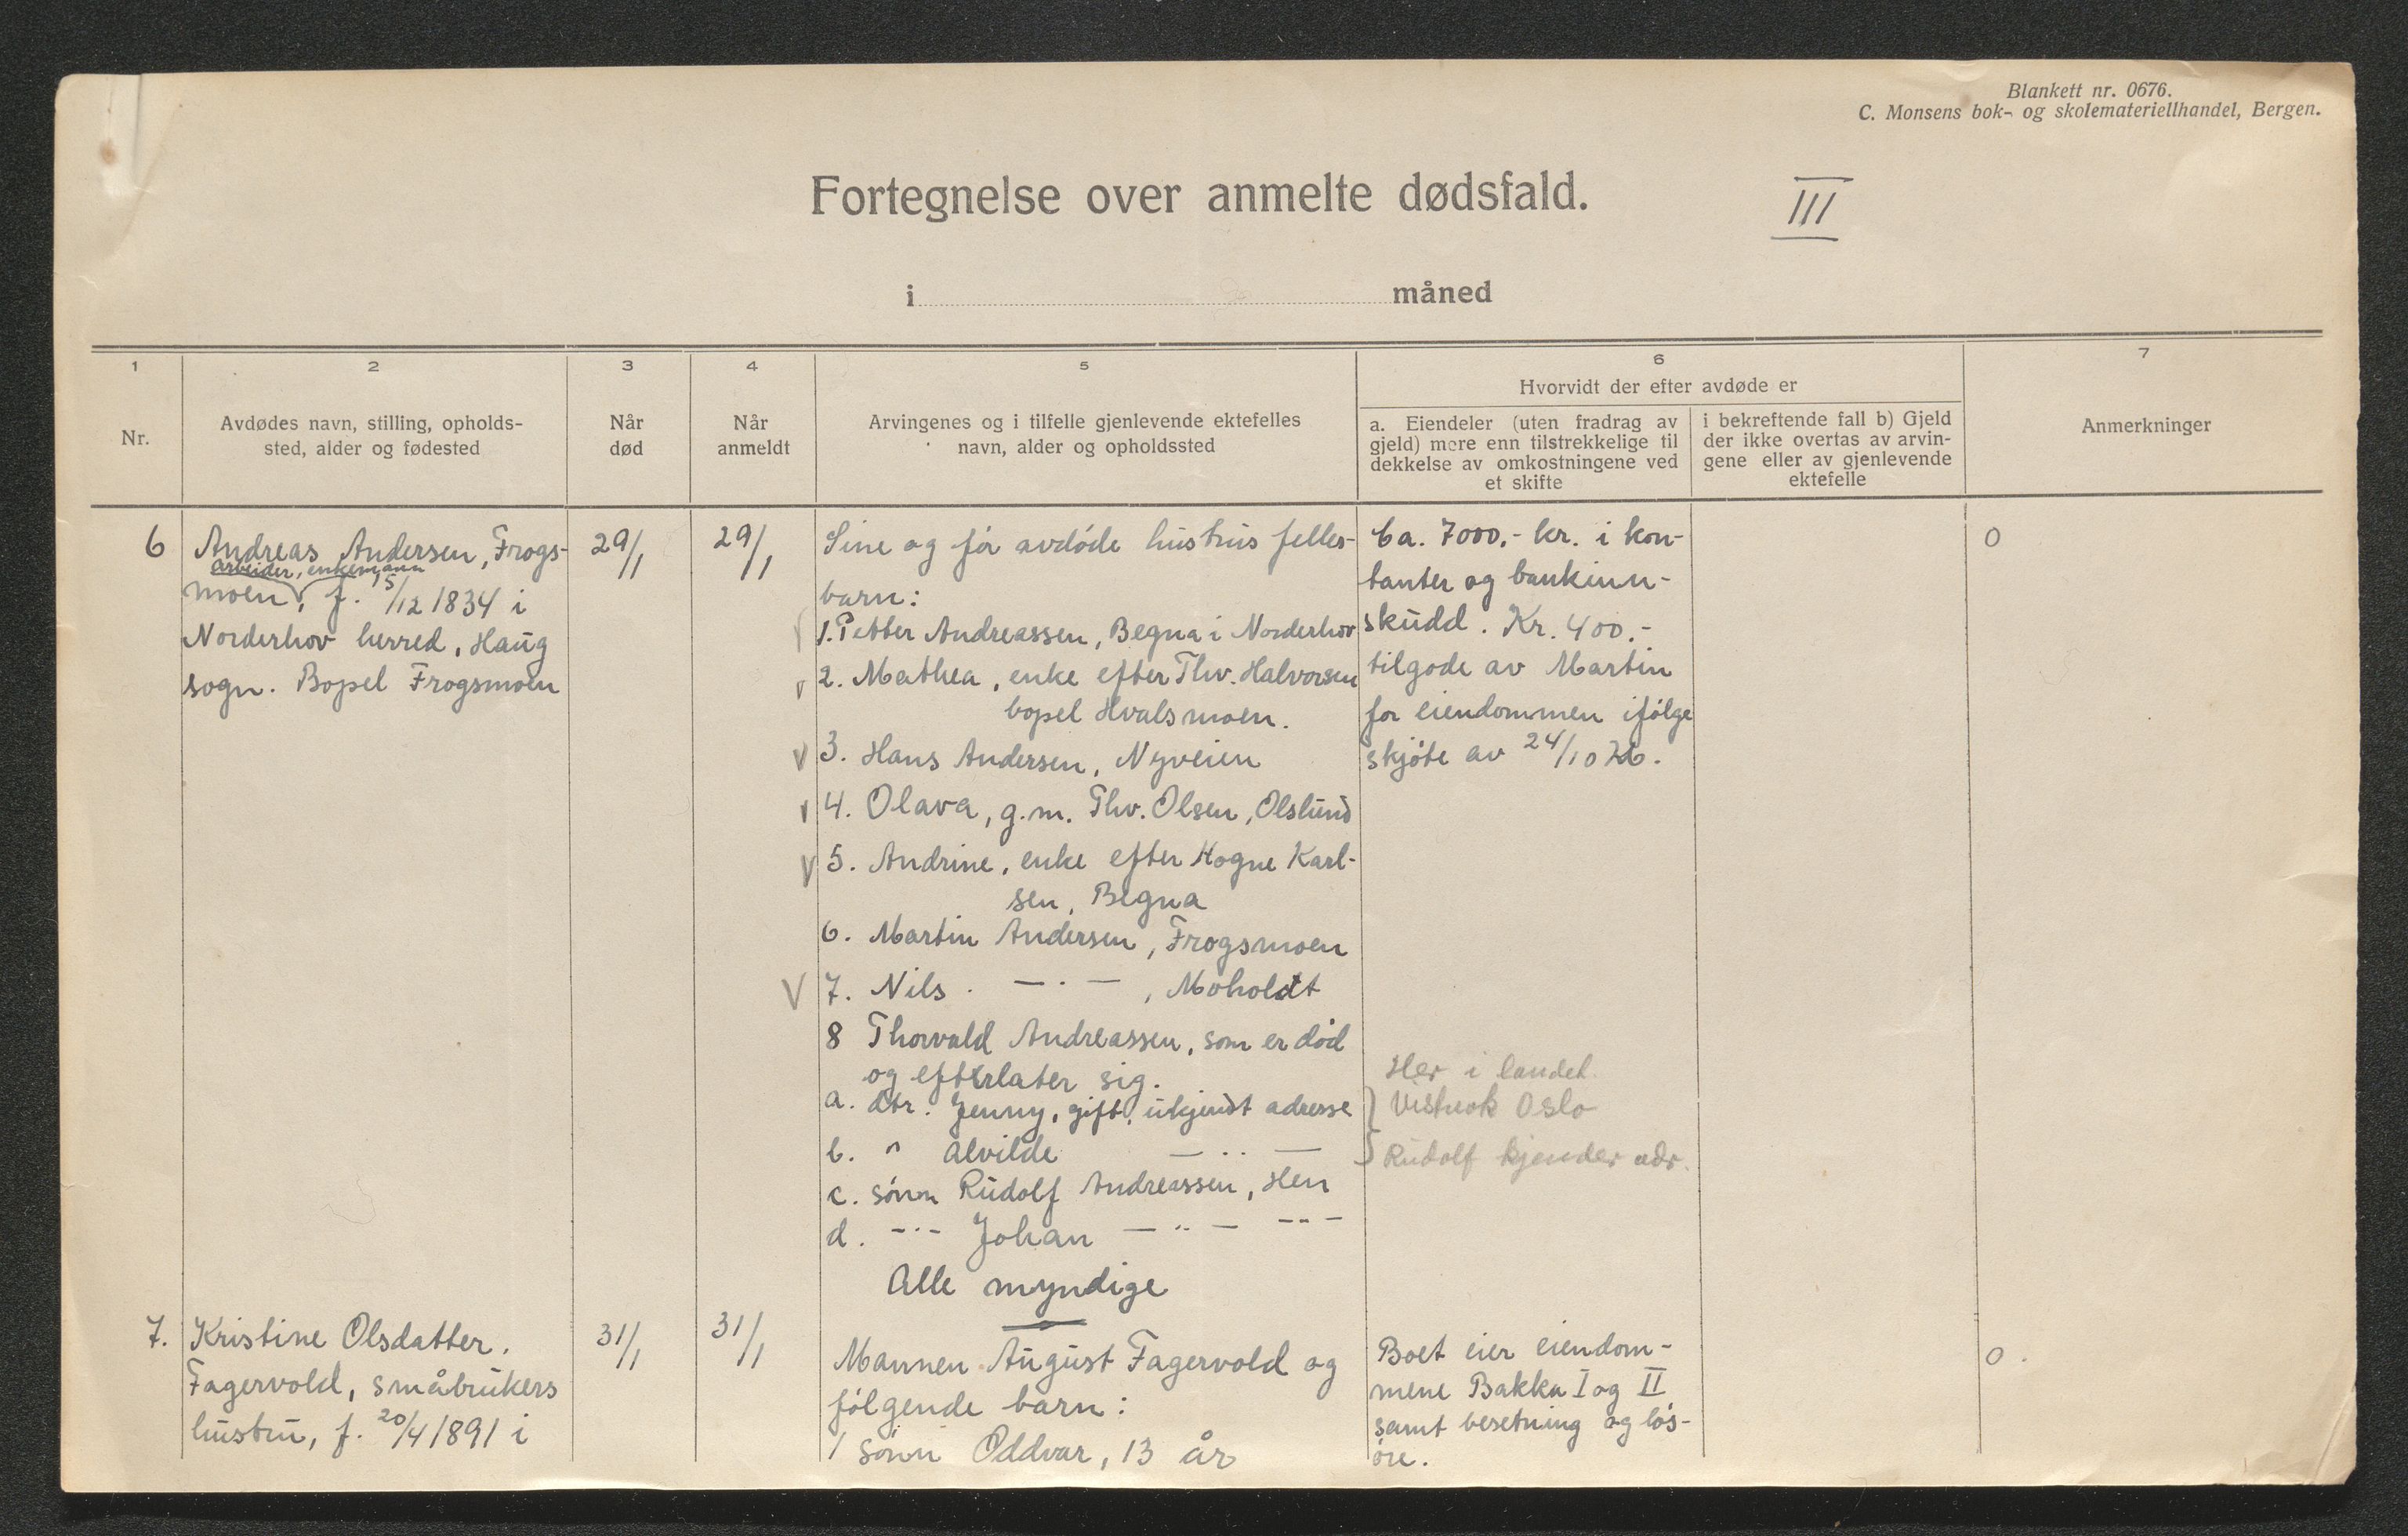 Blankett nr. 0676.
C. Monsens bok- og skolemateriellhandel, Bergen.
Fortegnelse over anmelte dødsfald.
III
i måned
1
2
3
4
5
6
7
Nr.
Avdødes navn, stilling, opholds-
sted, alder og fødested
Når
død
Når
anmeldt
Arvingenes og i tilfelle gjenlevende ektefelles
navn, alder og opholdssted
Hvorvidt der efter avdøde er
a. Eiendeler (uten fradrag av
gjeld) mere enn tilstrekkelige til
dekkelse av omkostningene ved
et skifte
i bekreftende fall b) Gjeld
der ikke overtas av arvin-
gene eller av gjenlevende
ektefelle
Anmerkninger
6
Andreas Andersen, Frogs-
arbeider, enkemann
moen, f. 15/12 1834 i
Norderhov herred, Haug
sogn. Bopel Frogsmoen
29/1
29/1
Sine og før avdøde hustrus felles-
barn:
1. Petter Andreassen, Begna i Norderhov
2. Mathea, enke efter Thv. Halvorsen
bopel Hvalsmoen.
3. Hans Andersen, Nyveien
4. Olava, g.m. Thv. Olsen, Olslund
5. Andrine, enke efter Hogne Karl-
sen, Begna
6. Martin Andersen, Frogsmoen
7. Nils — · — , Moholdt
8 Thorvald Andreassen, som er død
og efterlater sig.
a. dtr. Jenny, gift, ukjendt adresse
b. " Alvilde — ·· —
c. sønn Rudolf Andreassen, Hen
d. -··- Johan — ·· — -··-
Alle myndige
Ca. 7000,- kr. i kon-
tanter og bankinn-
skudd. Kr. 400.-
tilgode av Martin
for eiendommen ifølge
skjøte av 24/10
Her i landet
Vistnok Oslo
Rudolf kjender adr.
0
7.
Kristine Olsdatter.
Fagervold, småbrukers
hustru, f. 20/4 1891 i
31/1
31/1
Mannen August Fagervold og
følgende barn:
1 sønn Oddvar, 13 år
Boet eier eiendom-
mene Bakka I og II
samt besetning og løs-
øre.
0.